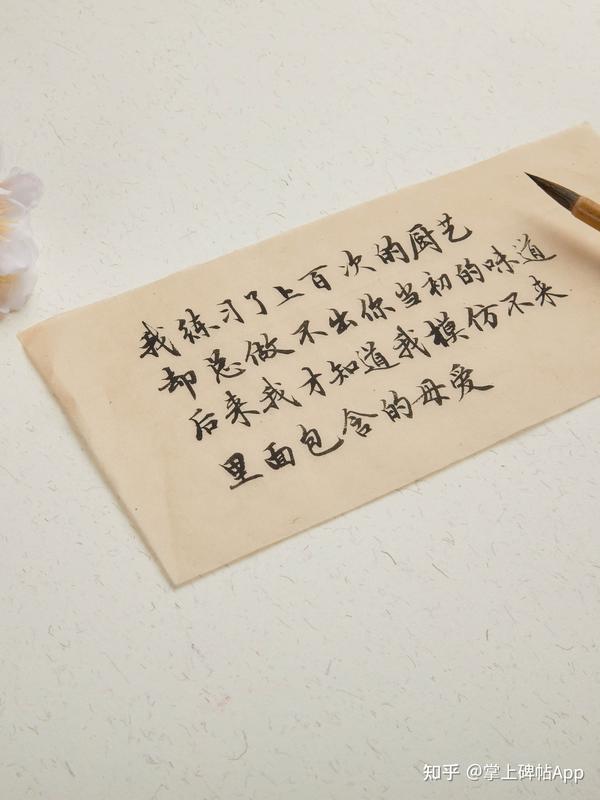 我练习了上百次的厨艺
却总做不出你当初的味道
后来我才知道我模仿不来
里面包含的母爱
知乎 @掌上碑帖App